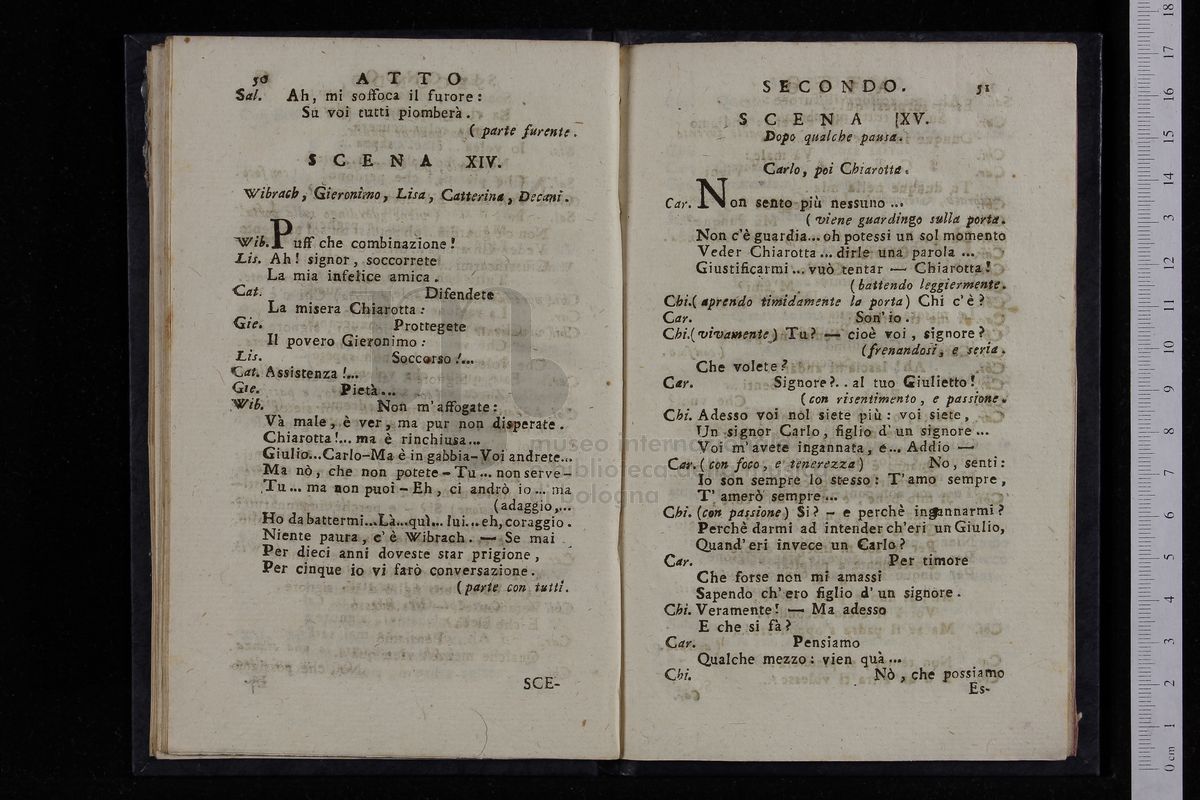 50 ATTO
Sal. Ah, mi soffoca il furore:
Su voi tutti piomberà.
( parte furente.
SCENA XIV.
Wibrach, Gieronimo, Lisa, Catterina, Decani.
Wib. Puff che combinazione!
Lis. Ah! signor, soccorrete
La mia infelice amica.
Cat. Difendete
La misera Chiarotta:
Gie. Prottegete
Il povero Gieronimo:
Lis. Soccorso!...
Cat. Assistenza!...
Gie. Pietà...
Wib. Non m'affogate:
Và male, è ver, ma pur non disperate.
Chiarotta!... ma è rinchiusa...
Giulio...Carlo-Ma è in gabbia-Voi andrete...
Ma nò, che non potete - Tu... non serve-
Tu... ma non puoi - Eh, ci andrò io... ma
(adaggio,...
Ho da battermi...Là...quì... lui...eh, coraggio.
Niente paura, c'è Wibrach. — Se mai
Per dieci anni doveste star prigione,
Per cinque io vi farò conversazione.
(parte con tutti.
SCE-
SECONDO. 51
SCENA XV.
Dopo qualche pausa.
Carlo, poi Chiarotta.
Car. Non sento più nessuno...
( viene guardingo sulla porta.
Non c'è guardia... oh potessi un sol momento
Veder Chiarotta... dirle una parola...
Giustificarmi... vuò tentar — Chiarotta!
(battendo leggiermente.
Chi.( aprendo timidamente la porta) Chi c'è?
Car. Son' io.
Chi.(vivamente) Tu? — cioè voi, signore?
(frenandosi, e seria.
Che volete?
Car. Signore?.. al tuo Giulietto!
(con risentimento, e passione.
Chi. Adesso voi nol siete più: voi siete,
Un signor Carlo, figlio d'un signore...
Voi m'avete ingannata, e... Addio —
Car. (con foco, e tenerezza) No, senti:
Io son sempre lo stesso: T'amo sempre,
T'amerò sempre...
Chi. (con passione) Si? - e perchè ingannarmi?
Perchè darmi ad intender ch'eri un Giulio,
Quand'eri invece un Carlo?
Car. Per timore
Che forse non mi amassi
Sapendo ch'ero figlio d'un signore.
Chi. Veramente! — Ma adesso
E che si fà?
Car. Pensiamo
Qualche mezzo: vien quà...
Chi. Nò, che possiamo
Es-
museo internazionale
biblioteca della musica
bologna
0 cm 1 2 3 4 5 6 7 8 9 10 11 12 13 14 15 16 17 18